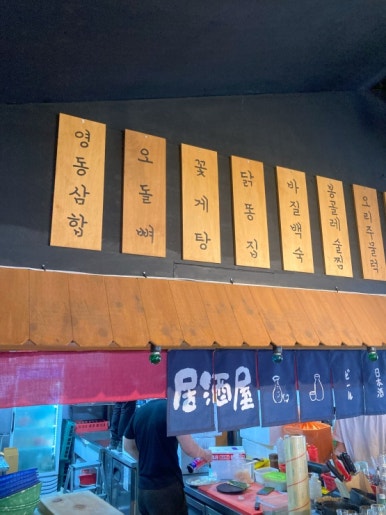 영동삼합
오돌뼈
꽃게탕
닭똥집
바질백숙
봉골레술찜
오리주물럭
居酒屋
ビール
日本酒